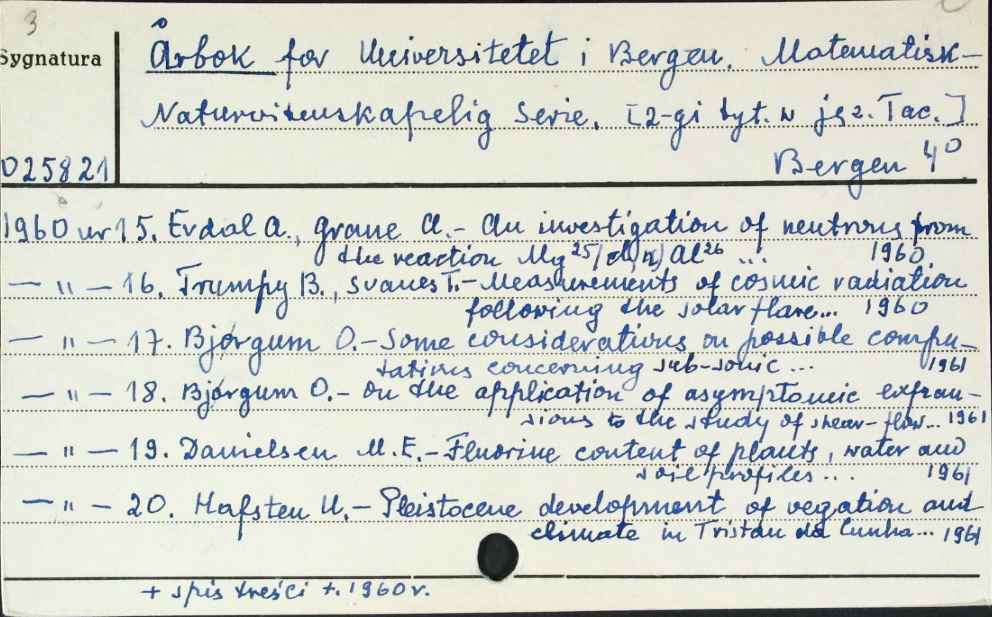 3
Sygnatura
Årbok for Universitetet i Bergen. Matematisk-
Naturvitenskapelig Serie. [2-gi tyt. w jęz. Łac.]
025821
Bergen 4°
1960 nr 15. Erdal A., Graue A.- An investigation of neutrons from
the reaction Mg25(d,n) Al26 ... 1960.
— " — 16. Trumpy B., Svanes T.- Measurements of cosmic radiation
following the solar flare... 1960
— " — 17. Bjørgum O.- Some considerations on possible compu-
tations concerning sub-sonic ... 1961
— " — 18. Bjørgum O.- On the application of asymptomic expan-
sions to the study of shear-flow... 1961
— " — 19. Danielsen M.E.- Fluorine content of plants, water and
soil profiles ... 1961
— " — 20. Hafsten U.- Pleistocene development of vegation and
climate in Tristan da Cunha... 1961
+ spis treści t. 1960 r.